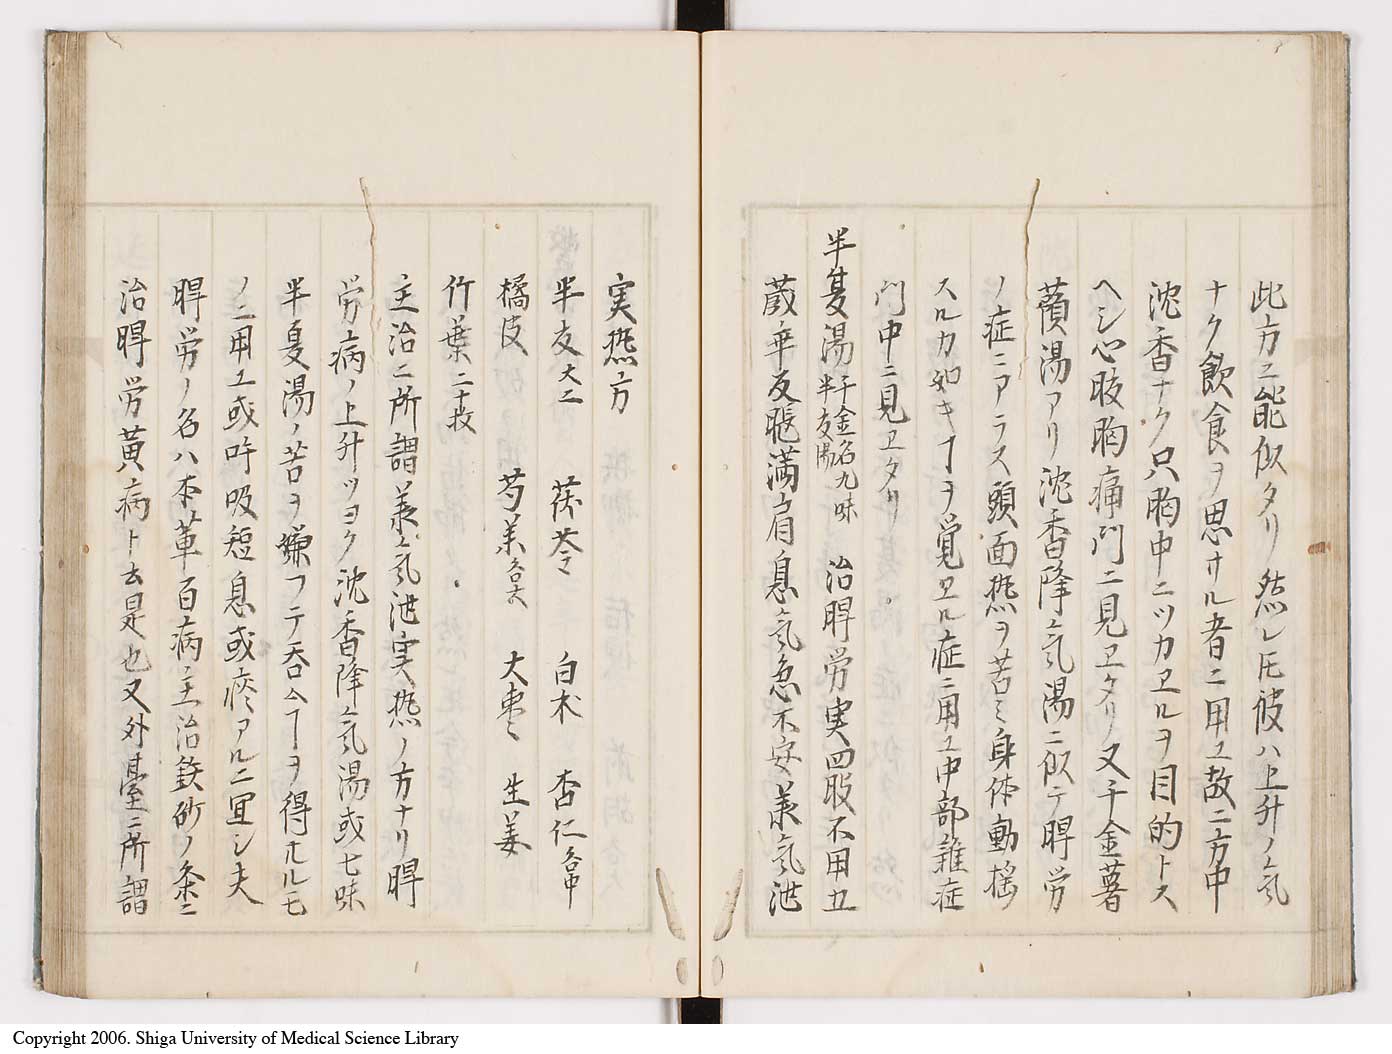 此方ヱ能似タリ然レ𪜈彼ハ上升ノ気
ナク飲食ヲ思ハサル者ニ用ユ故ニ方中
沈香ナク只胸中ニツカヱルヲ目的トス
ヘシ心肢胸痛門ニ見ヱタリ又千金薯
蕷湯アリ沈香降気湯ニ似テ脾労
ノ症ニアラス頭面熱ヲ苦ミ身体動揺
スルカ如キヿヲ覚ヱル症ニ用ユ中部雑症
門中ニ見ヱタリ
半夏湯 千金名九味半夏湯 治脾労実四肢不用五
蔵乖反脹満肩息気急不安義気泄
実熱方
半夏大二 茯苓 白朮 杏仁各中
橘皮 芍薬各大 大棗 生姜
竹葉二十枚
主治ニ所謂義気泄実熱ノ方ナリ脾
労病ノ上升ツヨク沈香降気湯或七味
半夏湯ノ苦ヲ嫌フテ呑ムヿヲ得サルモ
ノニ用ユ或呼吸短息或痰アルニ宜シ夫
脾労ノ名ハ本草百病主治鉄砂ノ条ニ
治脾労黄病ト云是也又外臺ニ所謂
Copyright 2006. Shiga University of Medical Science Library